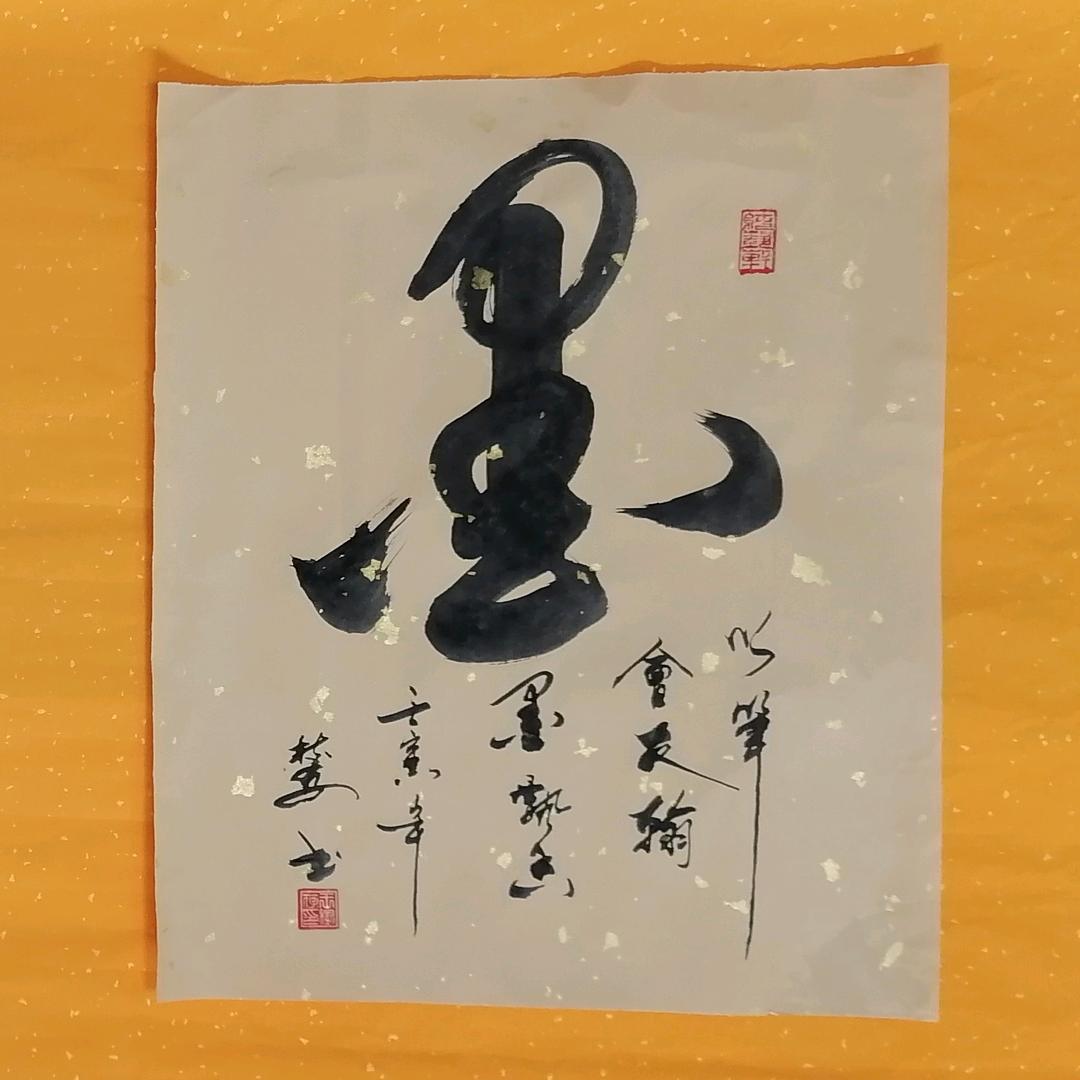 墨
以筆
會友翰
墨飄香
壬寅年
楚書